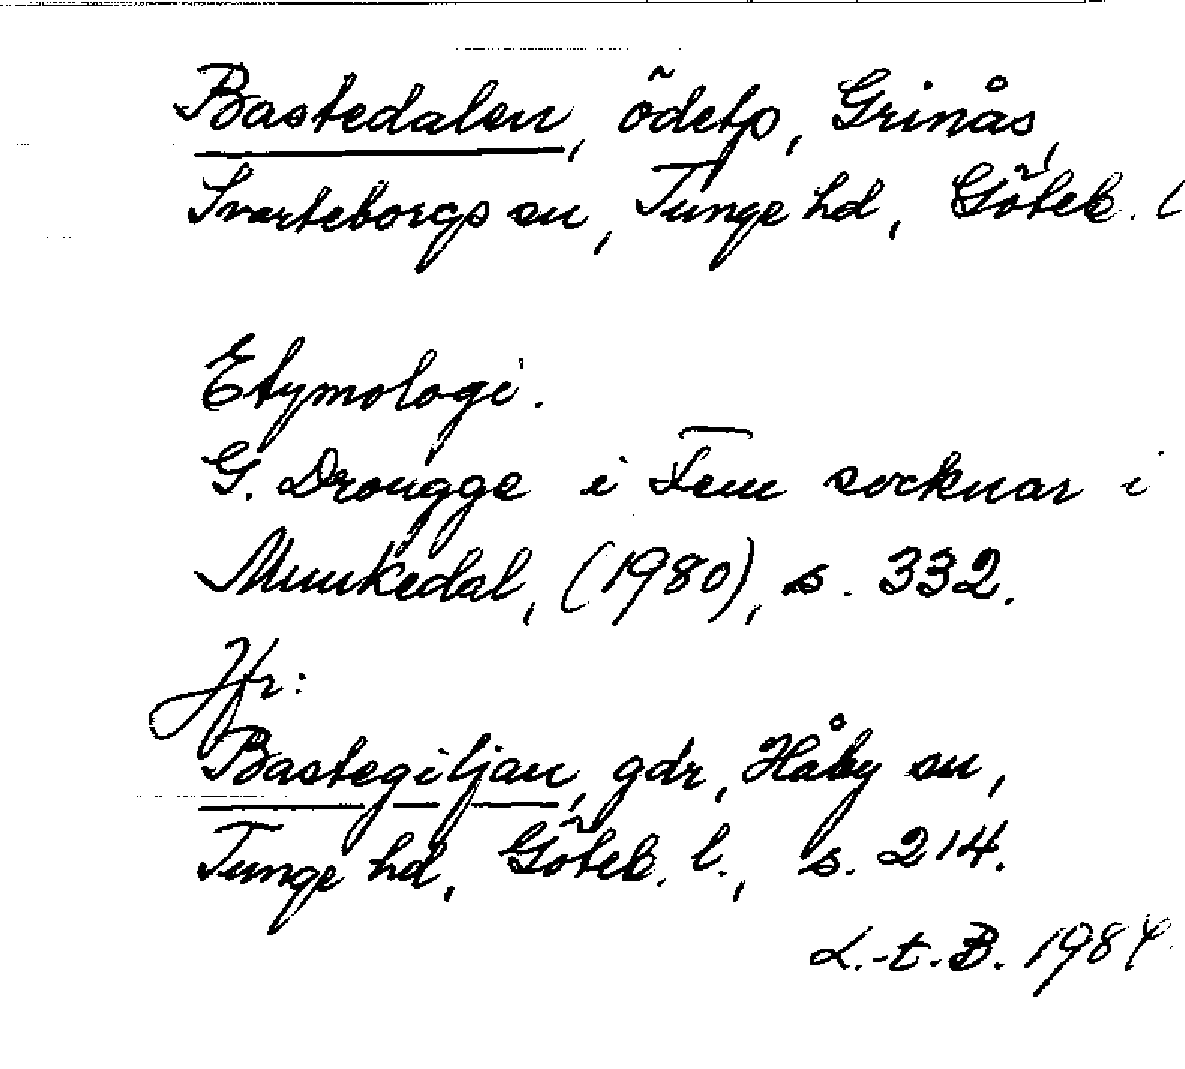 Bastedalen, ödetp, Grinås,
Svarteborgs sn, Tunge hd, Göteb. l
Etymologi.
G. Drougge i Fem socknar i
Munkedal, (1980), s. 332.
Jfr:
Bastegiljan, gdr, Håby sn,
Tunge hd, Göteb. l., s. 214.
L.-t. B. 1984.